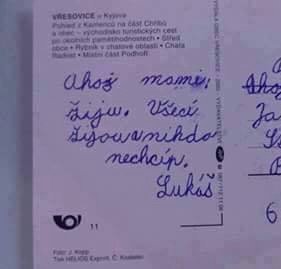 VŘESOVICE u Kyjova
Pohled z Kamenců na část Chřibů
a obec - východisko turistických cest
po okolních pamětihodnostech • Střed
obce • Rybník v chatové oblasti • Chata
Radost • Místní část Podhoří
Ahoj mami,
žiju. Všici
žijou a nikdo
nechcíp.
Lukáš
11
Foto: J. Kopp
Tisk HELIOS Exposit, Č. Kostelec
6